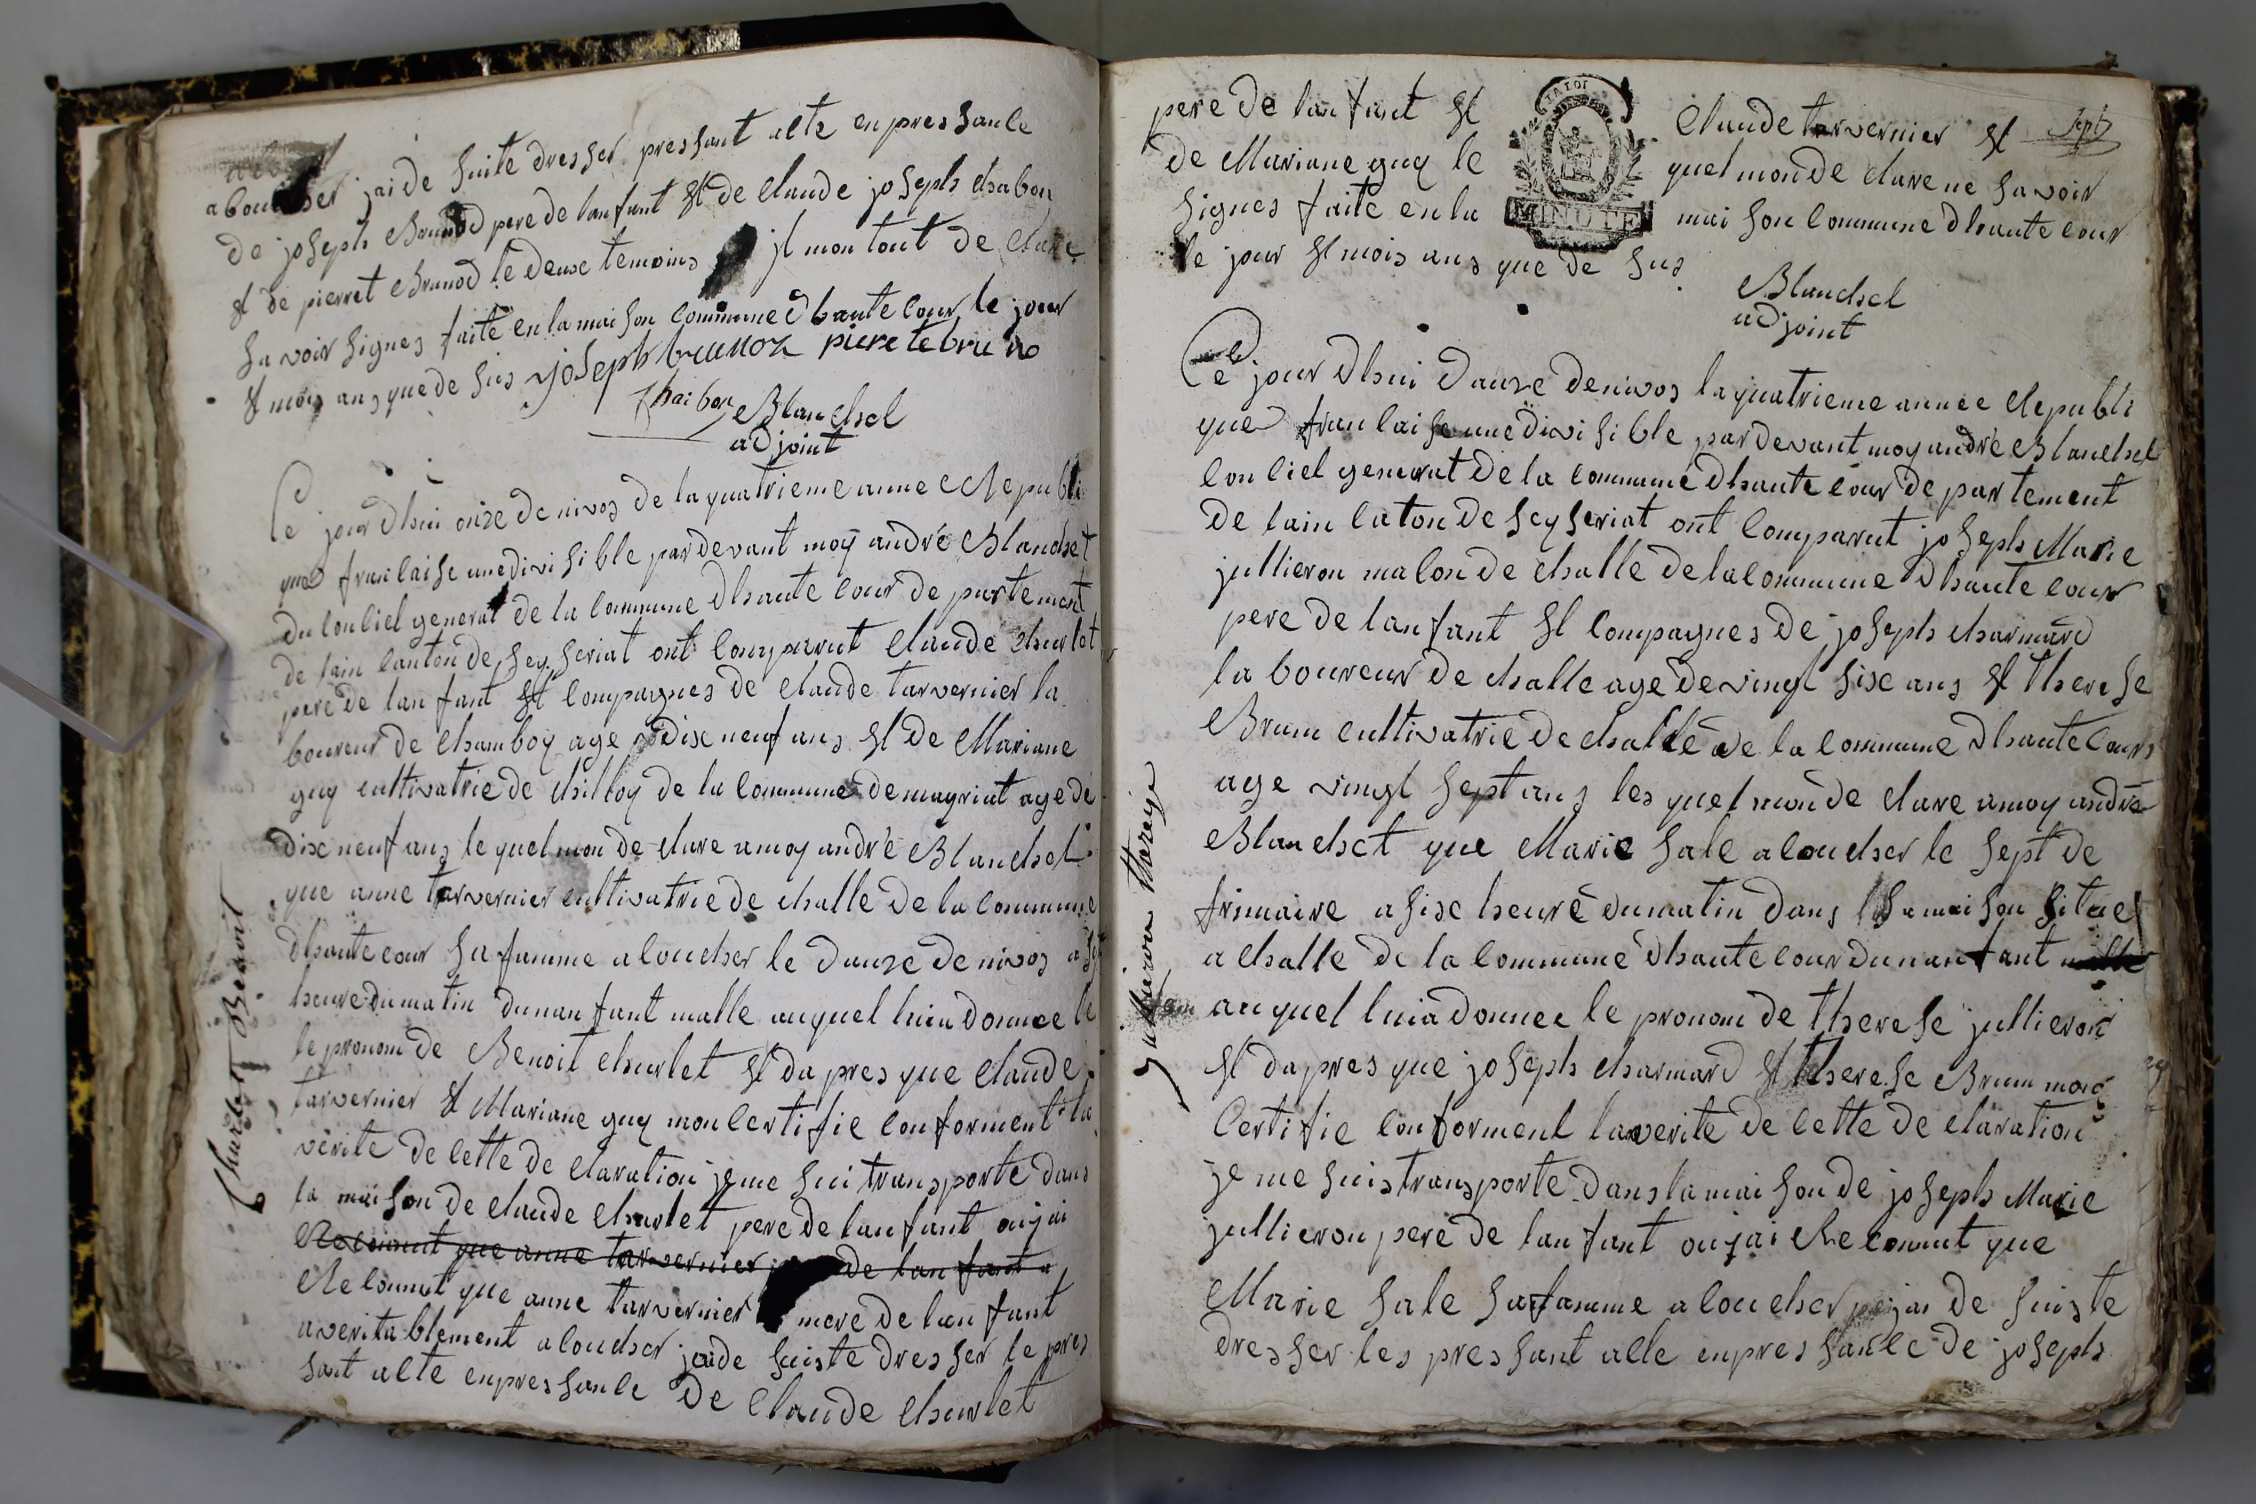 abouchser jai de suite dresser pressant alte en pressanle
de josephs Brunod pere de lanfant st de Claude josephs Chabon
st de pierret Brunod le deuxe temoins jl mon tout de Clare
savoir signes faite en la maison Commune dhaute Cour le jour
st mois ans que de sus joseph brunoz pierete bruno
Chaibon Blanchel
adjoint
Ce jour dhui onze de nivos de la quatrieme annee Republi
que franlaise unedivisible par devant moy andré Blanchet
du Conliel generat de la Commune dhaute Cour de partement
de lain Canton de seyseriat ont Comparut Claude Churlet
pere de lanfant st Compagnes de Claude tarvernier la
boureur de Chamboy age dixneuf ans st de Mariane
guy cultivatrie de Chilloy de la Commune de mayriat age de
dixneuf ans le quel mon de Clare amoy andré Blanchel
que anne tarvernier cultivatrie de Challe de la Commune
dhaute cour sa famme alouchser le dauze de nivos a
heure du matin dunanfant malle auquel luia donnee le
le pronom de Benoit Churlet st dapres que Claude
tarvernier st Mariane guy mon Certifie Conforment la
verite de Cette de Claration je me sui transporte dans
la maison de Claude Churlet pere de lanfant ou jai
Reconnut que anne tarvernier de lanfant a
Reconnut que anne tarvernier mere de lanfant
averitablement alouchser jai de suiste dresser le pres
sant alte enpressanle de Claude Churlet
Churlet Benoit
pere de lanfant st Claude tarvernier st Sept
de Mariane guy le quel mon de Clare ne savoir
signes faite en la maison Commune dhaute cour
le jour st mois ans que de sus
MINUTE
Blanchel
adjoint
Ce jour dhui dauze denivos la quatrieme annee Republi
que franlaise unedivisible par devant moy andré Blanchel
Conliel generat de la Commune dhaute Cour de partement
de lain Caton de seyseriat ont Comparut josephs Marie
jullieron malon de Challe de la Commune dhaute cour
pere de lanfant st Compagnes de josephs Charmard
laboureur de Challe age de vingt sixe ans st therese
Brum cultivatrie de Challe de la Commune dhaute Cours
age vingt sept ans les quel mon de Clare amoy andré
Blanchet que Marie sale alouchser le sept de
frimaire a sixe heure du matin dans sa maison situe
a Challe de la Commune dhaute Cour dunanfant malle
auquel luia donnee le pronom de therese jullieron
st dapres que josephs Charmard st therese Brum mon
Certifie Conforment la verite de Cette de Claration
je me suis transporte dans la maison de josephs Marie
jullieron pere de lanfant ou jai Reconnut que
Marie sale sa famme alouchser jai de suiste
dresser les pressant alte enpressanle de josephs
jullieron thereze